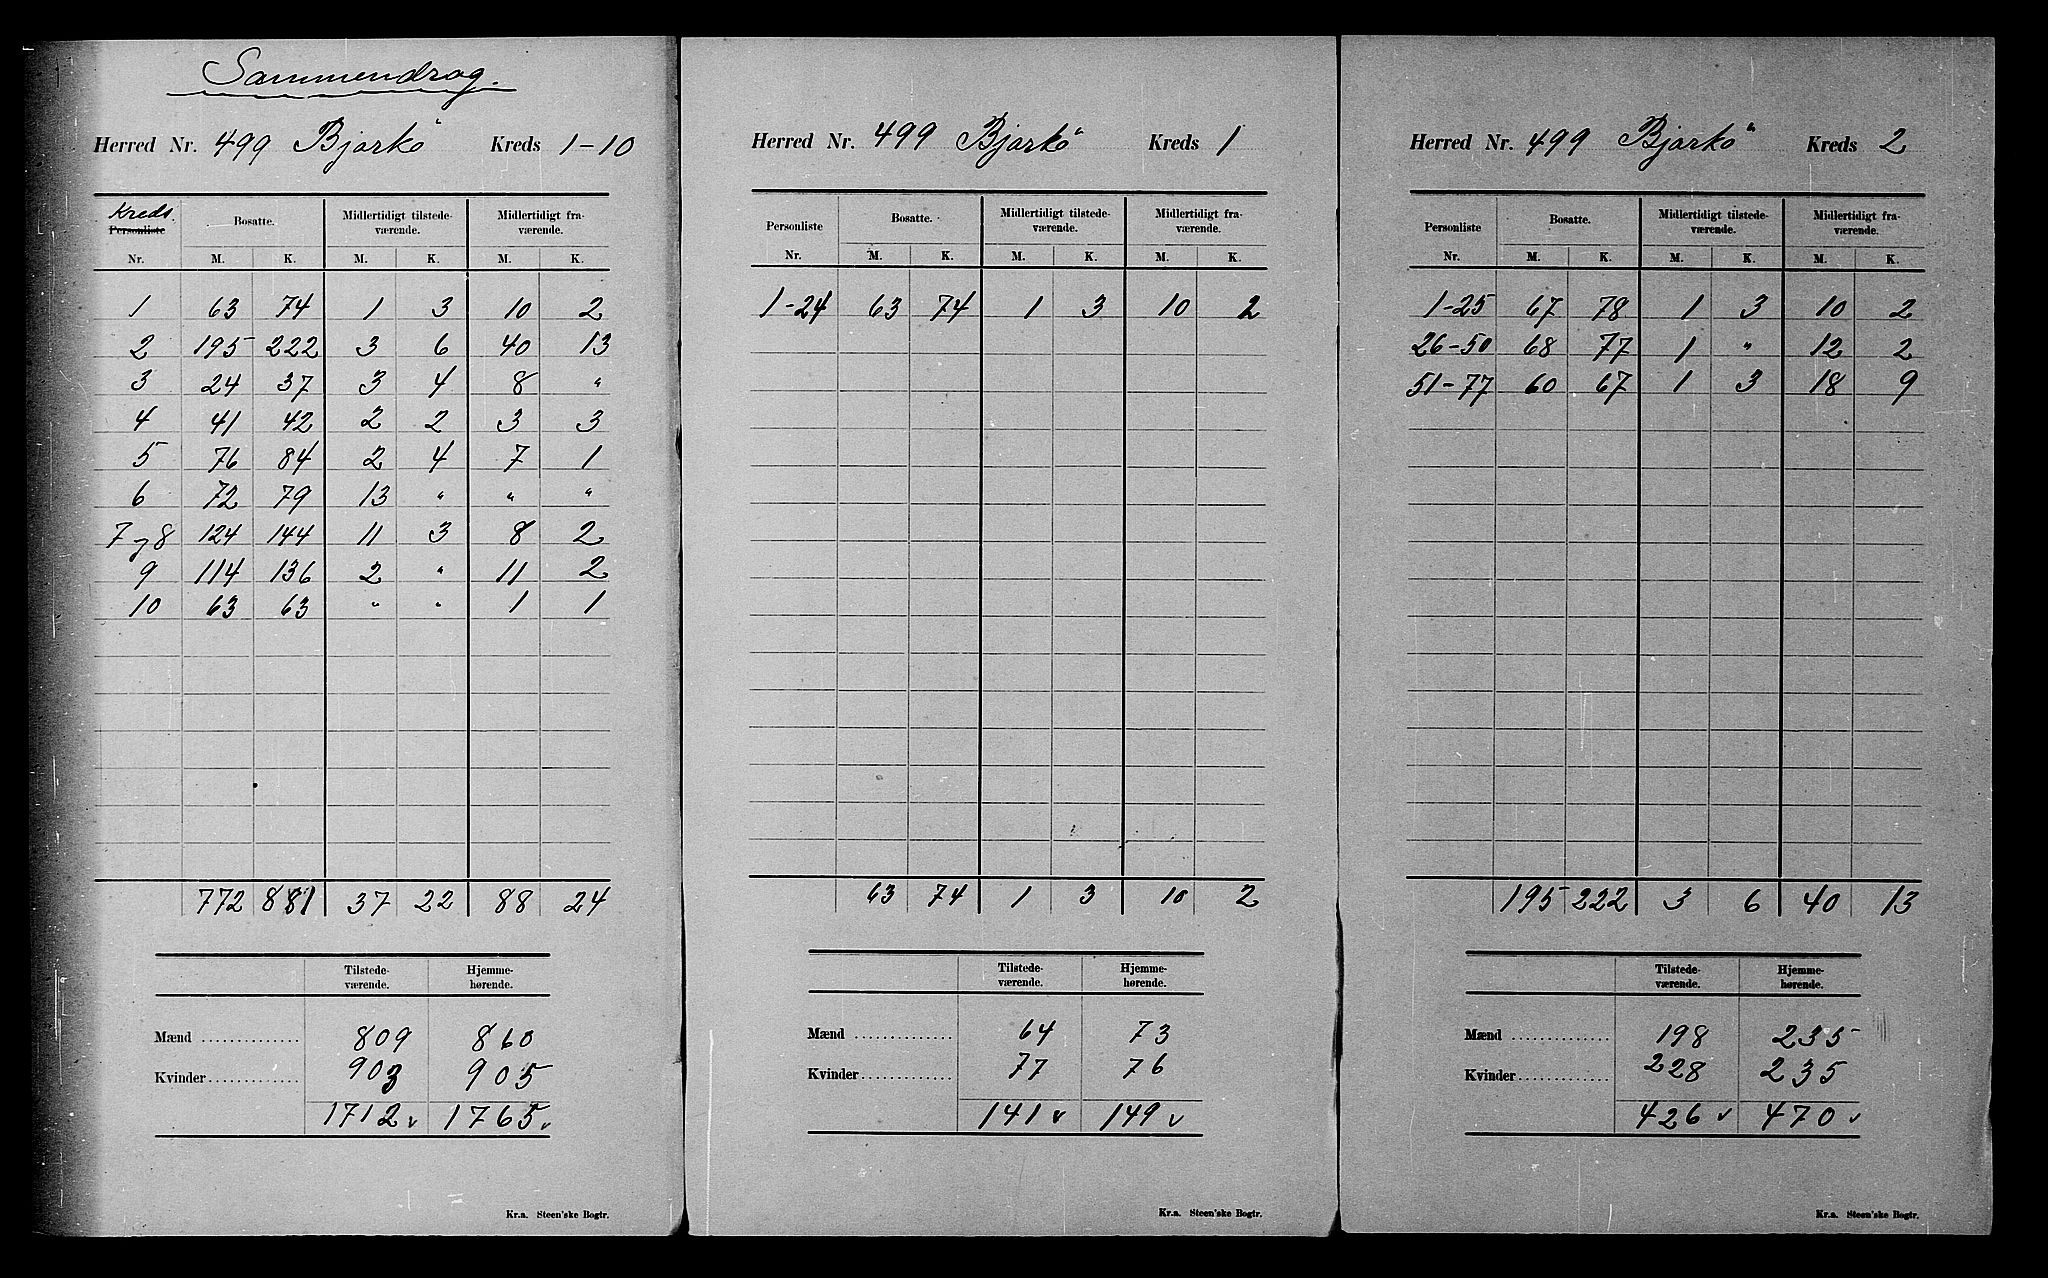 Sammendrag.
Herred Nr. 499 Bjarkö Kreds 1-10
Kreds.
Personliste Bosatte. Midlertidigt tilstede- Midlertidigt fra-
værende. værende.
Nr. M. K. M. K. M. K.
1 63 74 1 3 10 2
2 195 222 3 6 40 13
3 24 37 3 4 8 "
4 41 42 2 2 3 3
5 76 84 2 4 7 1
6 72 79 13 " " "
7 og 8 124 144 11 3 8 2
9 114 136 2 " 11 2
10 63 63 " " 1 1
772 881 37 22 88 24
Tilstede- Hjemme-
værende. hørende.
Mænd 809 860
Kvinder 903 905
1712 v 1765 v
Kr.a. Steen'ske Bogtr.
Herred Nr. 499 Bjarkö Kreds 1
Personliste Bosatte. Midlertidigt tilstede- Midlertidigt fra-
værende. værende.
Nr. M. K. M. K. M. K.
1-24 63 74 1 3 10 2
63 74 1 3 10 2
Tilstede- Hjemme-
værende. hørende.
Mænd 64 73
Kvinder 77 76
141 v 149 v
Kr.a. Steen'ske Bogtr.
Herred Nr. 499 Bjarkö Kreds 2
Personliste Bosatte. Midlertidigt tilstede- Midlertidigt fra-
værende. værende.
Nr. M. K. M. K. M. K.
1-25 67 78 1 3 10 2
26-50 68 77 1 " 12 2
51-77 60 67 1 3 18 9
195 222 3 6 40 13
Tilstede- Hjemme-
værende. hørende.
Mænd 198 235
Kvinder 228 235
426 v 470 v
Kr.a. Steen'ske Bogtr.